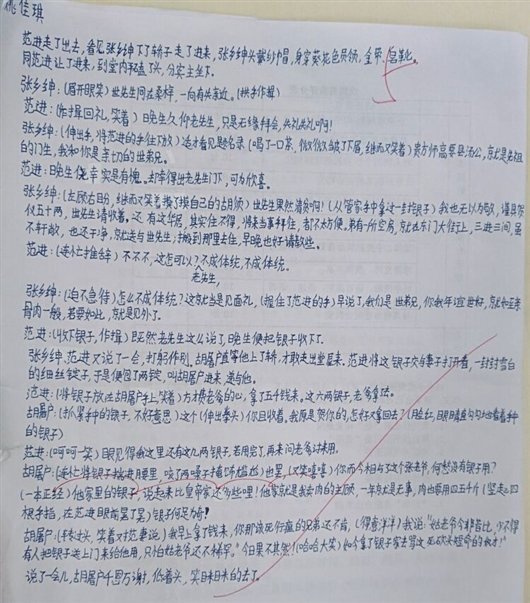 姚佳琪
范进走了出去，看见张乡绅下了轿子走了进来，张乡绅头戴纱帽，身穿葵花色员领，金带、皂靴。
同范进让了进来，到堂内平磕了头，分宾主坐下。
张乡绅：(眉开眼笑)世先生同在桑梓，一向有失亲近。(拱手作揖)
范进：(作揖回礼，笑着)晚生久仰老先生，只是无缘拜会，失礼失礼啊！
张乡绅：(伸出手，将范进的手往下放)适才看见题名录(喝了一口茶，继而又笑着)贵房师高要县汤公，就是先祖
的门生，我和你是亲切的世弟兄。
范进：晚生侥幸实是有愧。却幸得出老先生门下，可为欣喜。
张乡绅：(左顾右目分，继而又笑着摸了摸自己的胡须)世先生果然清贫啊！(从管家手中拿过一封银子)我也无以为敬，谨具贺
仪五十两，世先生请收着。这华居，其实住不得，将来当事拜往，都不太方便。弟有一所空房，就在东门大街上，三进三间，虽
不轩敞，也还干净，就送与世先生；搬到那里去住，早晚也好请教些。
范进：(连忙推辞)不不不，这怎可以？不成体统，不成体统。
老先生，
张乡绅：(迫不急待)怎么不成体统？这就当是见面礼(握住了范进的手)早说了，我们是世弟兄，你我年谊世好，就如至亲
骨肉一般，若要如此，就是见外了。
范进：(收下银子，作揖)既然老先生这么说了，晚生便把银子收下了。
张乡绅、范进又说了一会，打躬作别。胡屠户直等他上了轿，才敢走出堂屋来。范进将这银子交与妻子打开看，一封封雪白
的细丝锭子，于是便包了两锭，叫胡屠户进来，递与他。
范进：(将银子放在胡屠户手上，笑着)方才费老爹的心，拿了五千钱来。这六两银子，老爹拿去。
胡屠户：(扒紧手中的银子，不好意思)这个(伸出拳头)你且收着。我原是贺你的，怎好又拿回去？(脸红，眼睛直勾勾地看着手中
的银子)
范进：(呵呵一笑)眼见得我这里还有这几两银子，若用完了，再来问老爹讨来用。
胡屠户：(连忙将银子揣进腰里，咳了两嗓子掩饰尴尬)也罢，(又笑嘻嘻)你而今相与了这个张老爷，何愁没有银子用？
(一本正经)他家里的银子，说起来比皇帝家还多些哩！他家就是我卖肉的主顾，一年就是无事，肉也要用四五千斤(竖起四
根手指，在范进眼前晃了晃)银子何足为奇！
胡屠户：(转过头，笑着对范妻说)我早上拿了钱来，你那该死行瘟的兄弟还不肯，(得意洋洋)我说："姑老爷今非昔比，少不得
有人把银子送上门来给他用，只怕姑老爷还不稀罕。"今日果不其然！(哈哈大笑)如今拿了银子家去骂这死砍头短命的奴才！"
说了一会儿，胡屠户千恩万谢，低着头，笑日米日米的去了。